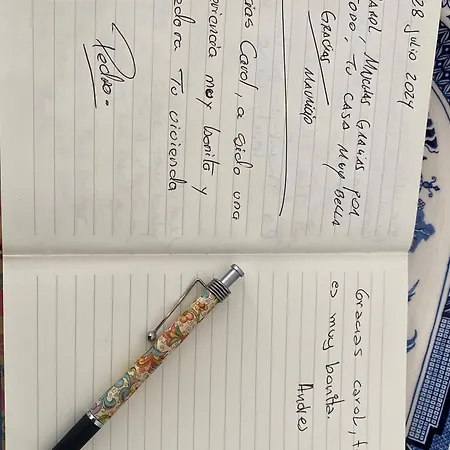 28 julio 2024
CAROL, MUCHAS GRACIAS POR
TODO, TU CASA MUY BELLA
GRACIAS
MAURICIO
cias Carol, a sido una
eriancia muy bonita y
edora Tu vivienda
Pedro.
Gracias carol, t
es muy bonita.
Andres